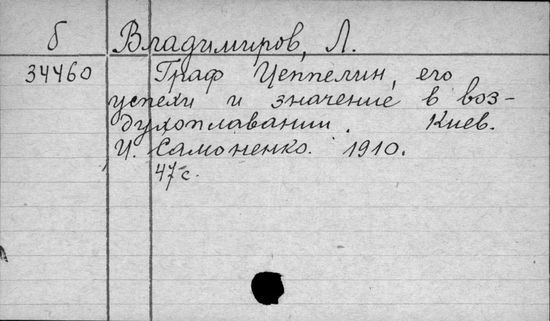 б Владимиров, Л.
34460 Граф Цеппелин, его
успехи и значение в воз-
духоплавании. Киев.
И. Самоненко. 1910.
47 с.